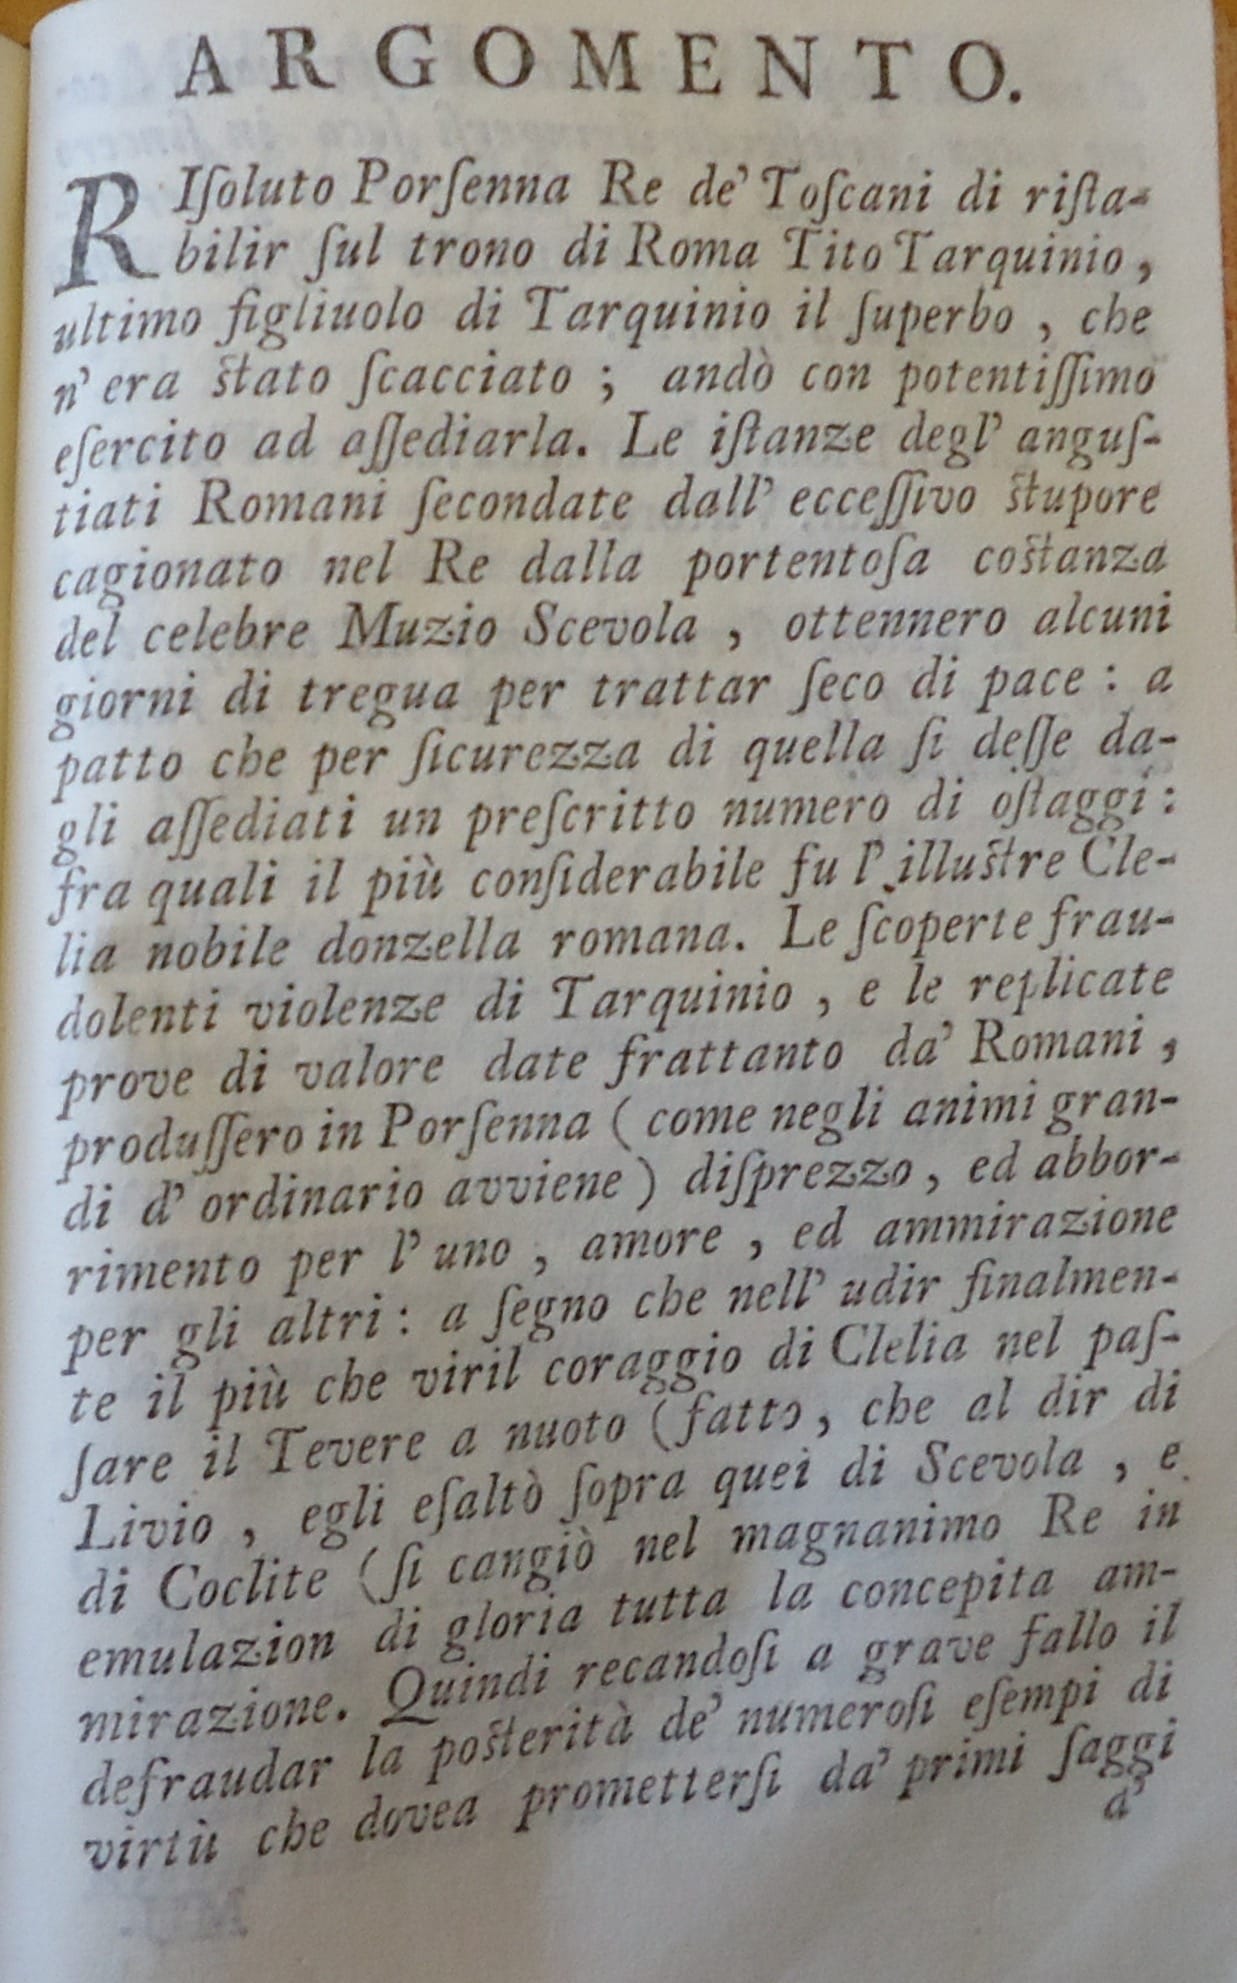 ARGOMENTO.
RIſoluto Porſenna Re de' Toſcani di riſta-
bilir ſul trono di Roma Tito Tarquinio,
ultimo figliuolo di Tarquinio il ſuperbo, che
n'era ſtato ſcacciato; andò con potentiſſimo
eſercito ad aſſediarla. Le iſtanze degl' anguſ-
tiati Romani ſecondate dall' ecceſſivo ſtupore
cagionato nel Re dalla portentoſa coſtanza
del celebre Muzio Scevola, ottennero alcuni
giorni di tregua per trattar ſeco di pace: a
patto che per ſicurezza di quella ſi deſſe da-
gli aſſediati un preſcritto numero di oſtaggi:
fra quali il più conſiderabile fu l'illuſtre Cle-
lia nobile donzella romana. Le ſcoperte frau-
dolenti violenze di Tarquinio, e le replicate
prove di valore date frattanto da' Romani,
produſſero in Porſenna (come negli animi gran-
di d' ordinario avviene) diſprezzo, ed abbor-
rimento per l'uno, amore, ed ammirazione
per gli altri: a ſegno che nell' udir finalmen-
te il più che viril coraggio di Clelia nel paſ-
ſare il Tevere a nuoto (fatto, che al dir di
Livio, egli eſaltò ſopra quei di Scevola, e
di Coclite (ſi cangiò nel magnanimo Re in
emulazion di gloria tutta la concepita am-
mirazione. Quindi recandoſi a grave fallo il
defraudar la poſterità de' numeroſi eſempi di
virtù che dovea prometterſi da' primi ſaggi
d'